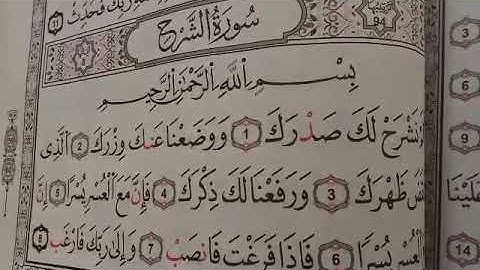 رَبِّكَ فَحَدِّثْ 11
سُورَةُ الشَّرْحِ
94
بِسْمِ ٱللَّهِ ٱلرَّحْمَٰنِ ٱلرَّحِيمِ
نَشْرَحْ لَكَ صَدْرَكَ 1 وَوَضَعْنَا عَنكَ وِزْرَكَ 2 ٱلَّذِى
ظَهْرَكَ 3 وَرَفَعْنَا لَكَ ذِكْرَكَ 4 فَإِنَّ مَعَ ٱلْعُسْرِ يُسْرًا 5 إِنَّ
ٱلْعُسْرِ يُسْرًا 6 فَإِذَا فَرَغْتَ فَٱنصَبْ 7 وَإِلَىٰ رَبِّكَ فَٱرْغَب 8
3
6
9
عَلَيْنَا
14